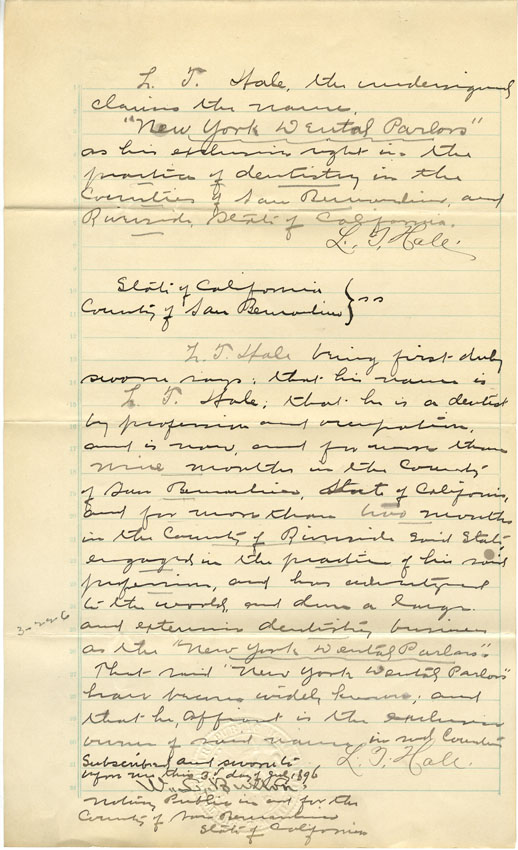 L. T. Hale, the undersigned
claims the name,
"New York Dental Parlors"
as his exclusive right in the
practice of dentistry in the
Counties of San Bernardino, and
Riverside, State of California.
L. T. Hale.
State of California
County of San Bernardino } ss
L. T. Hale being first duly
sworn says; that his name is
L. T. Hale; that he is a dentist
by profession and occupation,
and is now, and for more than
nine months in the County
of San Bernardino, State of California,
and for more than two months
in the County of Riverside said State
engaged in the practice of his said
profession, and has advertised
to the world, and done a large
and extensive dentistry business
as the "New York Dental Parlors".
That said "New York Dental Parlors"
have become widely known; and
that he, affiant is the exclusive
owner of said name, in said Counties
L. T. Hale.
Subscribed and sworn to
before me this 3d day of 1896
W. S.
Notary Public in and for the
County of San Bernardino
State of California
3-226